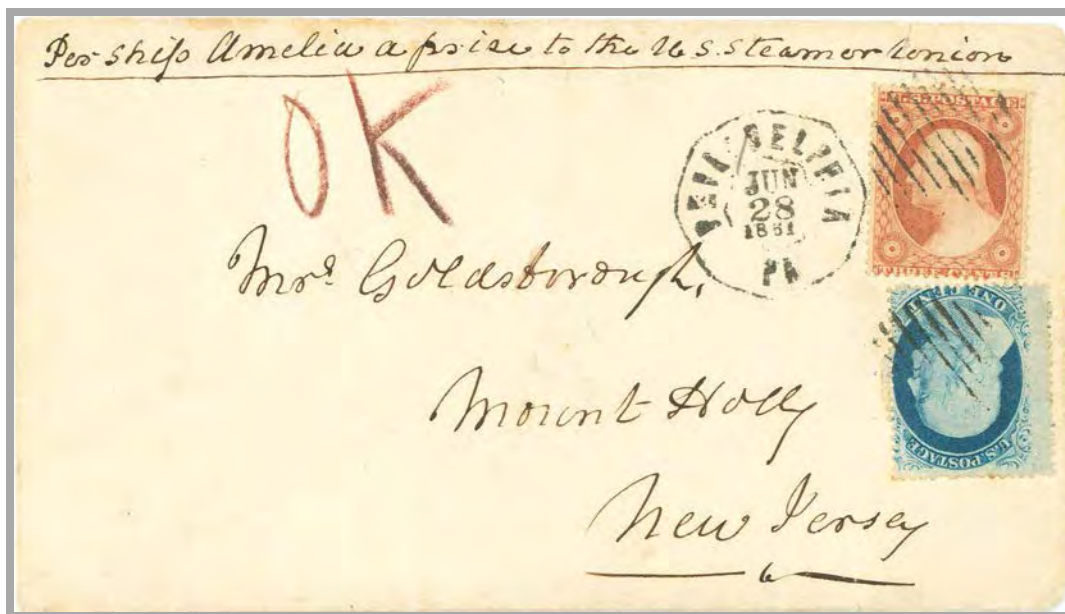 Per ship Amelia a prize to the U.S. steamer Union
OK
PHILADELPHIA
JUN
28
1861
PA
U.S. POSTAGE
THREE CENTS
Mrs. Goldsborough,
ONE CENT
U.S. POSTAGE
Mount Holly
New Jersey